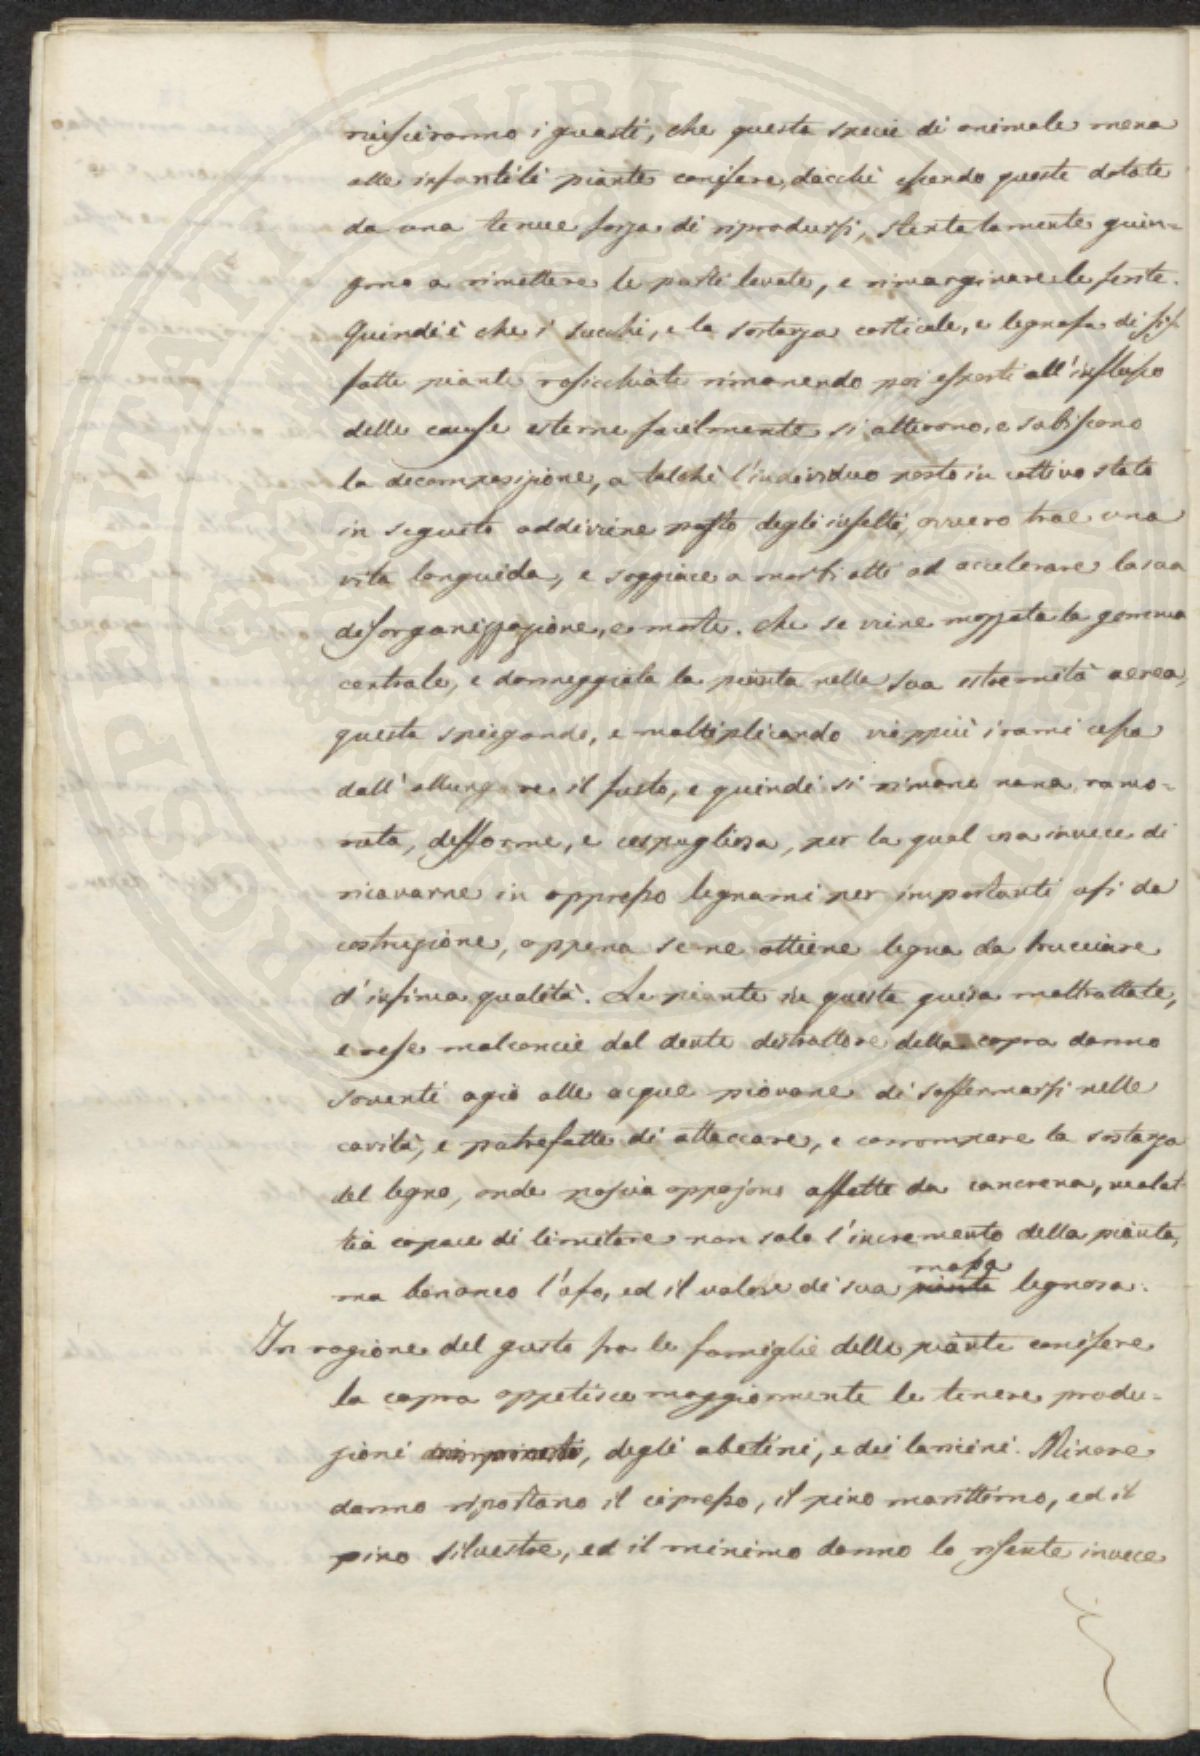 riusciranno i guasti, che questa specie di animale mena
alle infantili piante conifere, dacchè essendo queste dotate
da una tenue forza di riprodursi, stentatamente giun=
gono a rimettere le parti levate, e rimarginare le ferite.
Quindi è che i succhi, e la sostanza corticale, e legnosa di sif=
fatte piante rosicchiate rimanendo poi esposti all'influsso
delle cause esterne facilmente si alterano, e subiscono
la decomposizione, a talchè l'individuo posto in cattivo stato
in seguito addiviene pasto degli insetti, ovvero trae una
vita languida, e soggiace a morbi atti ad accelerare la sua
disorganizzazione, e morte. Che se viene mozzata la gemma
centrale, e danneggiata la pianta nella sua estremità aerea,
questa spiegando, e moltiplicando vieppiù i rami cessa
dall'allungare il fusto, e quindi si rimane nana, ramo=
ruta, difforme, e cespugliosa, per la qual cosa invece di
ricavarne in appresso legnami per importanti usi da
costruzione, appena se ne ottiene legna da bruciare
d'infima qualità. Le piante in questa guisa maltrattate,
e rese malconcie dal dente distruttore della capra danno
soventi agio alle acque piovane di soffermarsi nelle
cavità, e putrefatte di attaccare, e corrompere la sostanza
del legno, onde poscia appajono affette da cancrena, malat=
tia capace di limitare non solo l'incremento della pianta,
massa
ma bonanco l'uso, ed il valore di sua piante legnosa.
In ragione del gusto fra le famiglie delle piante conifere
la capra appetisce maggiormente le tenere produ=
zioni degli abetini, e dei laricini. Minore
danno riportano il cipresso, il pino marittimo, ed il
pino silvestre, ed il minimo danno lo risente invece
PROSPERITATI PUBLICAE